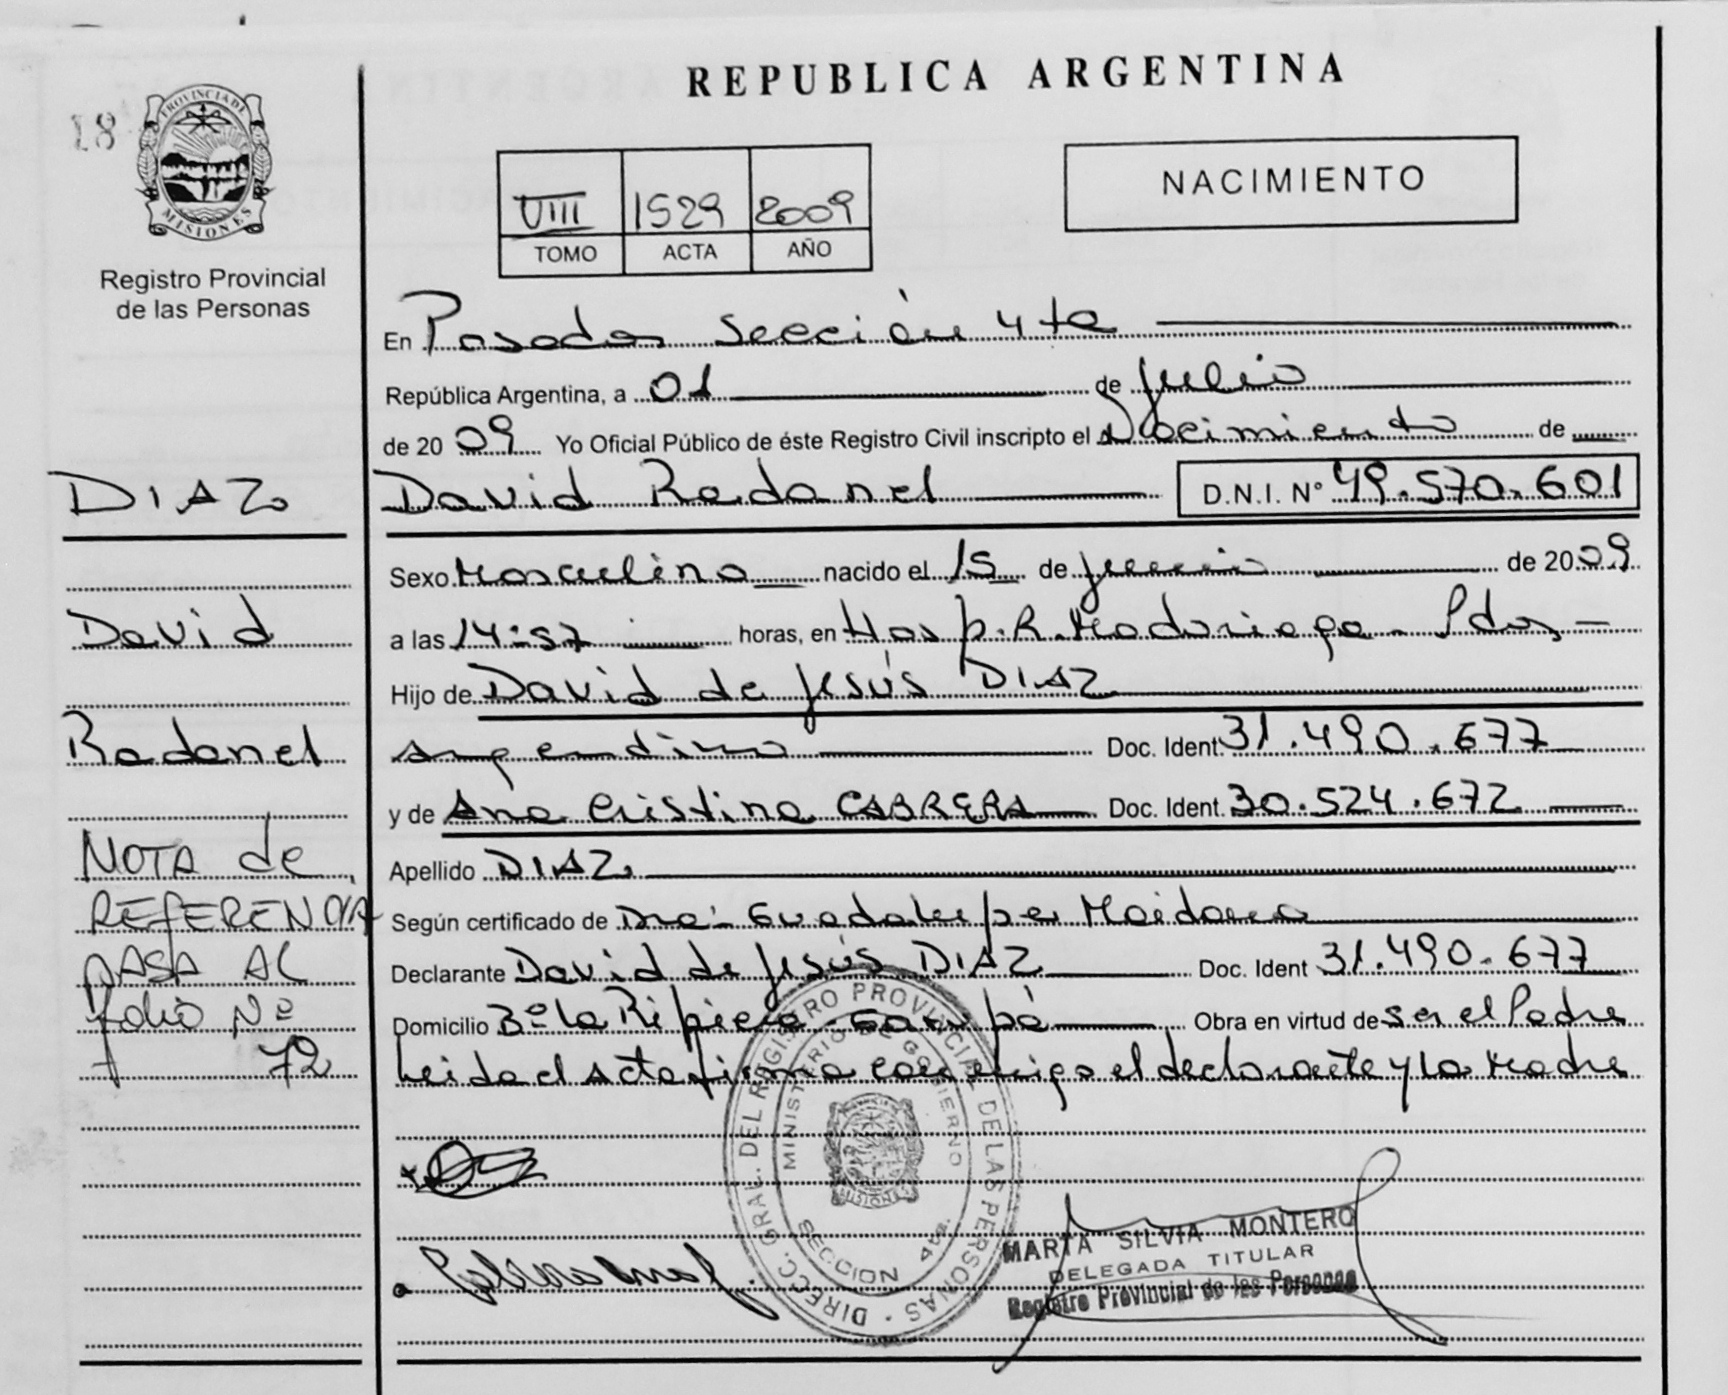 REPUBLICA ARGENTINA
18
PROVINCIA DE
MISIONES
Registro Provincial
de las Personas
NACIMIENTO
VIII 1529 2009
TOMO ACTA AÑO
En Posadas Sección 4ta
República Argentina, a 01 de Julio
de 2009 Yo Oficial Público de éste Registro Civil inscripto el Nacimiento de
DIAZ
David Radanel D.N.I. N° 49.570.601
Sexo Masculino nacido el 15 de Junio de 2009
David
a las 14:57 horas, en Hosp. R. Madariaga - Pdas -
Hijo de David de Jesús DIAZ
Radanel
Argentino Doc. Ident. 31.490.677
y de Ana Cristina CABRERA Doc. Ident. 30.524.672
NOTA de
REFERENCIA
PASA AL
folio Nº
72
Apellido DIAZ
Según certificado de Dra. Guadalupe
Declarante David de Jesús DIAZ Doc. Ident 31.490.677
Domicilio Bº La Ripiera - Garupá Obra en virtud de ser el Padre
Leida el Acta firma conmigo el declarante y la Madre
DIRECC. GRAL. DEL REGISTRO PROVINCIAL DE LAS PERSONAS
MINISTERIO DE GOBIERNO
MISIONES
SECCION 4ta.
MARTA SILVIA MONTERO
DELEGADA TITULAR
Registro Provincial de las Personas